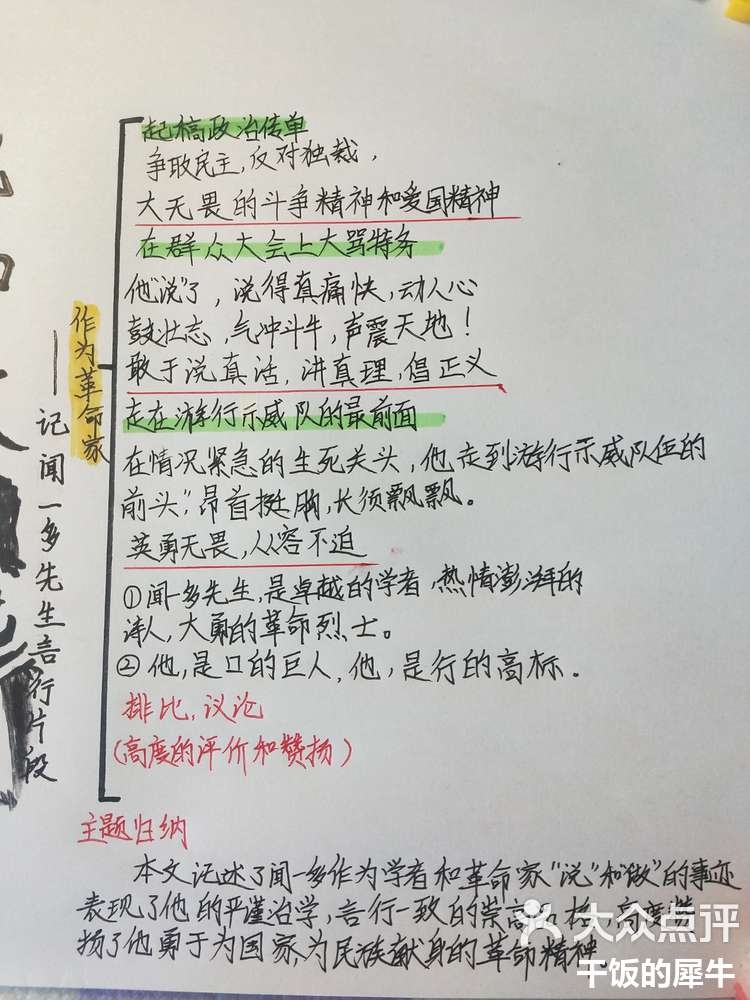 起稿政治传单
争取民主，反对独裁，
大无畏的斗争精神和爱国精神
在群众大会上大骂特务
他"说"了，说得真痛快，动人心
鼓壮志，气冲斗牛，声震天地！
敢于说真话，讲真理，倡正义
走在游行示威队的最前面
在情况紧急的生死关头，他走到游行示威队伍的
前头"，昂首挺胸，长须飘飘。
英勇无畏，从容不迫
①闻一多先生，是卓越的学者，热情澎湃的
诗人，大勇的革命烈士。
②他，是口的巨人，他，是行的高标.
排比，议论
(高度的评价和赞扬)
作为革命家
——记闻一多先生言行片段
主题归纳
本文记述了闻一多作为学者和革命家"说"和"做"的事迹
表现了他的严谨治学，言行一致的崇高 格，高度赞
扬了他勇于为国家，为民族献身的革命精神。
大众点评
干饭的犀牛